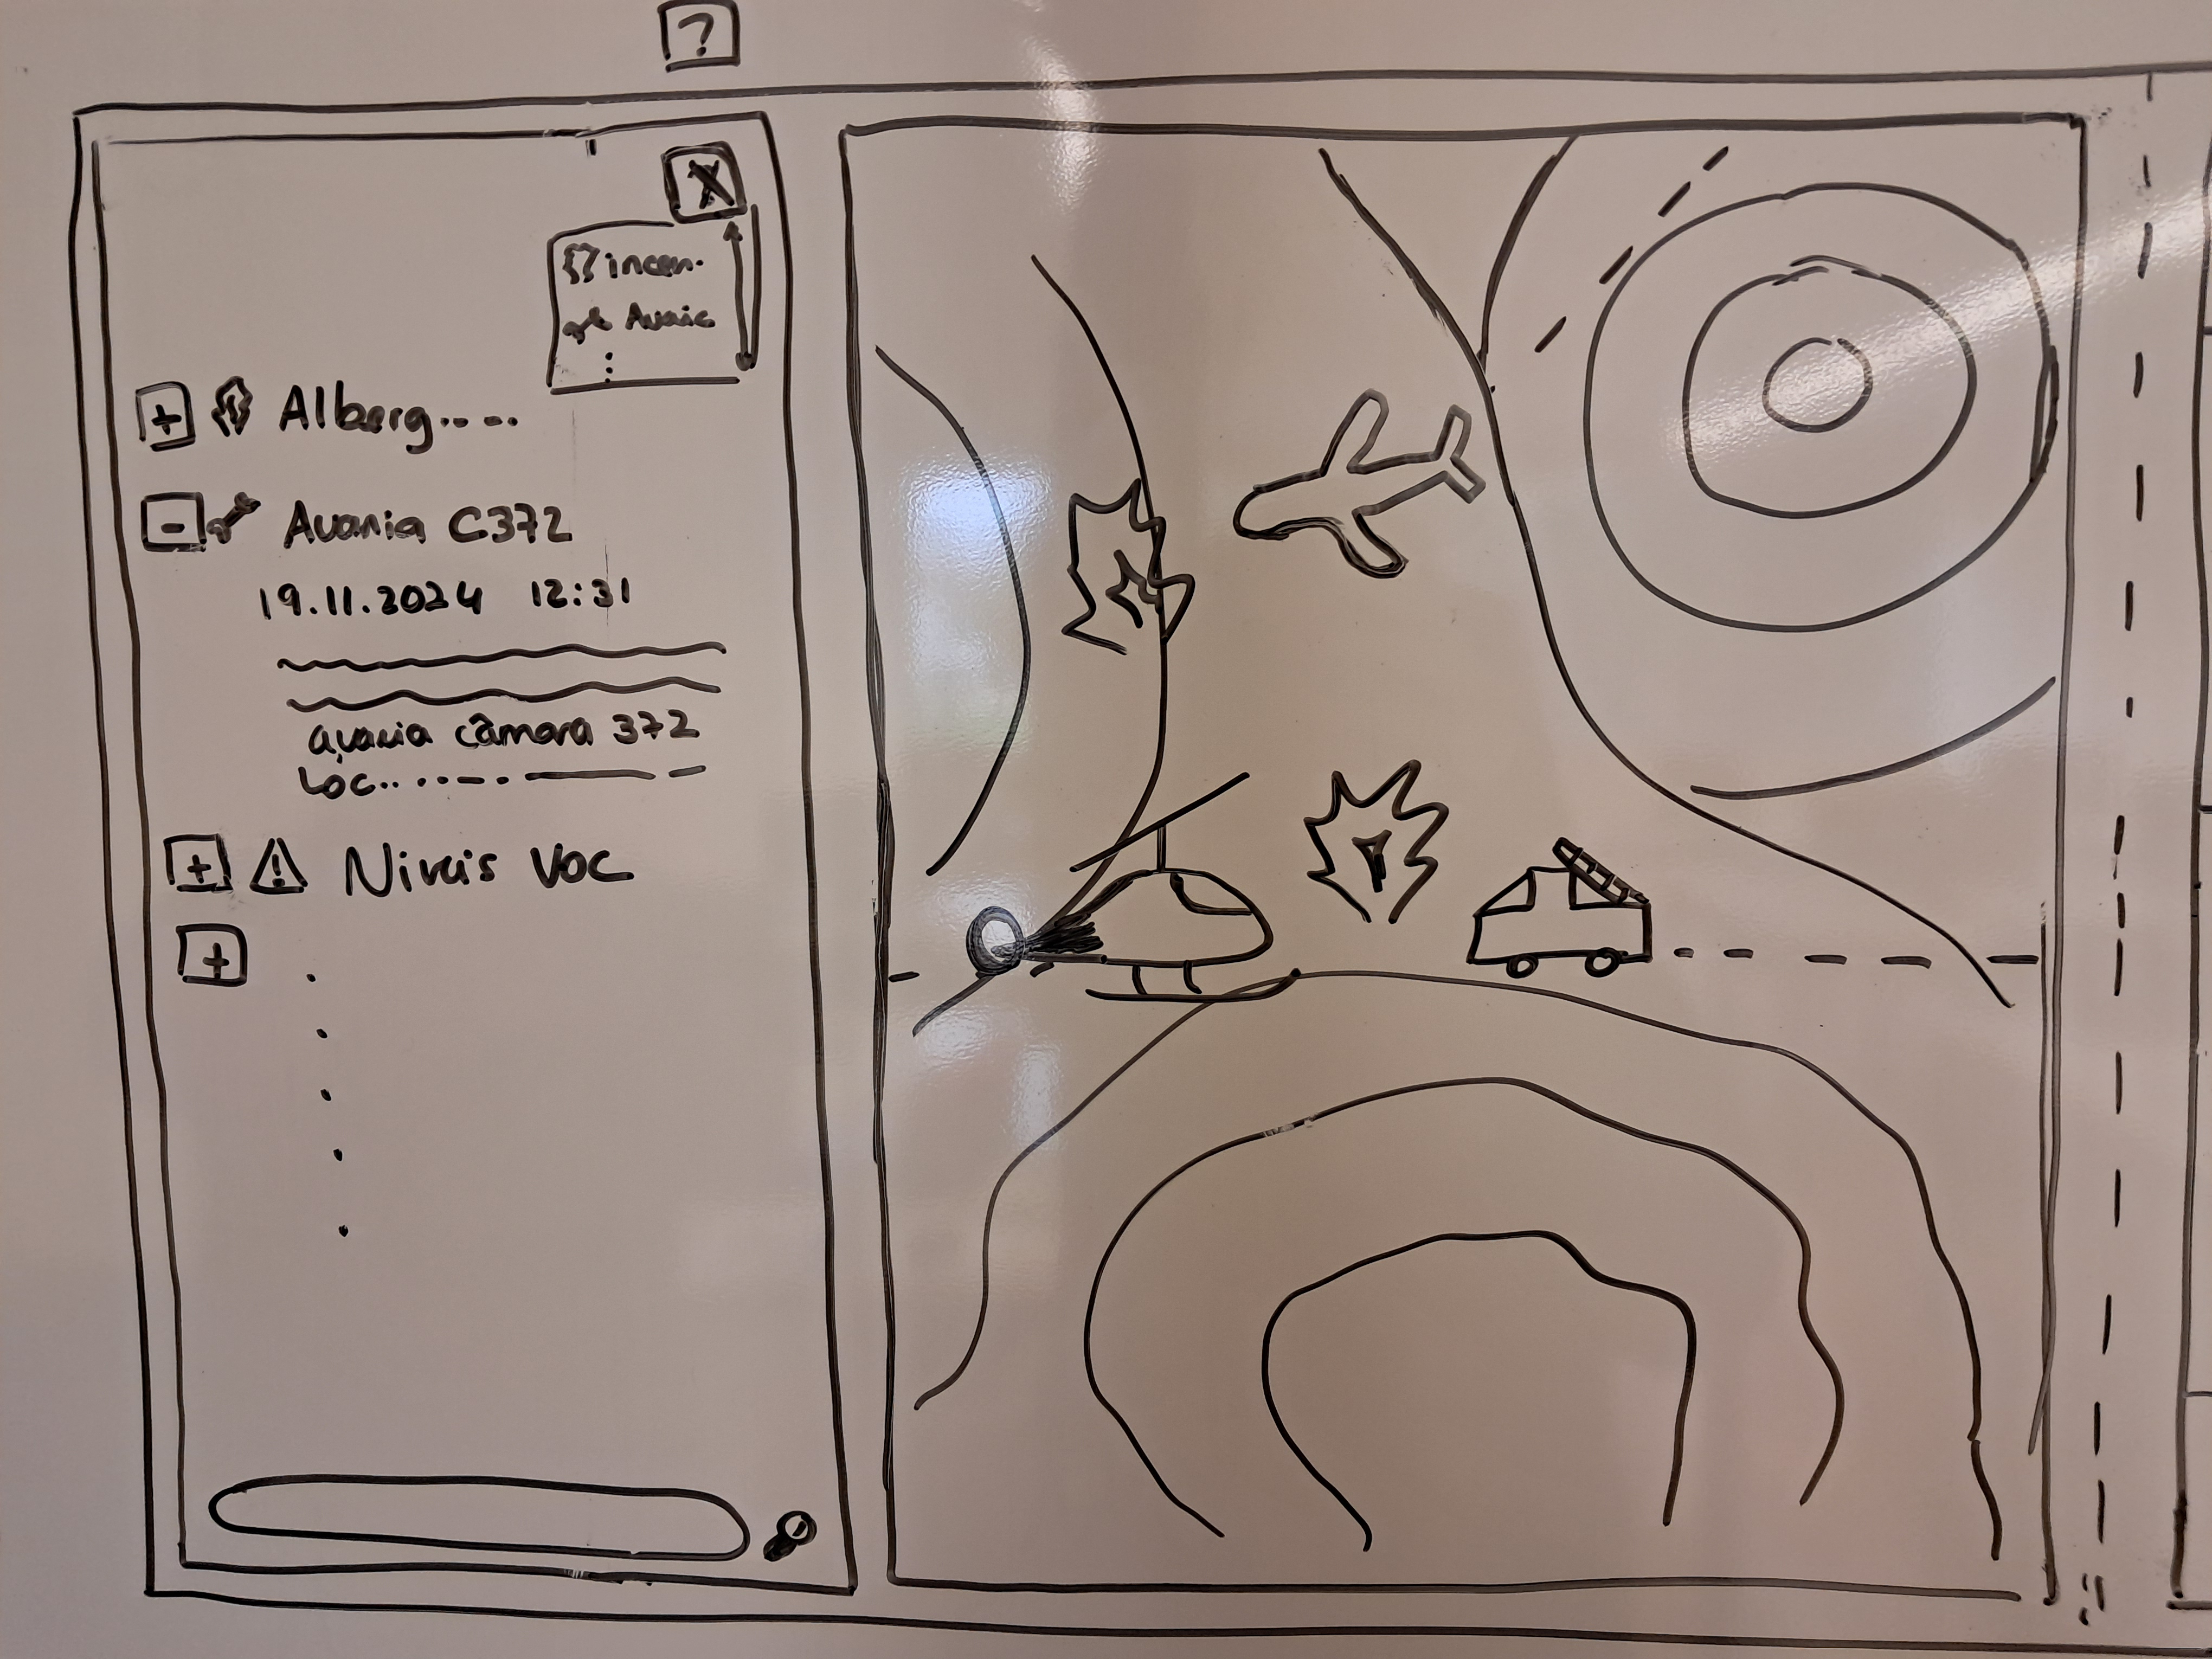 ?
X
incen.
Avaic
+ Alberg.....
- Avaria C372
19.11.2024 12:31
avaria câmara 372
Loc..
+ ! Niveis VOC
+